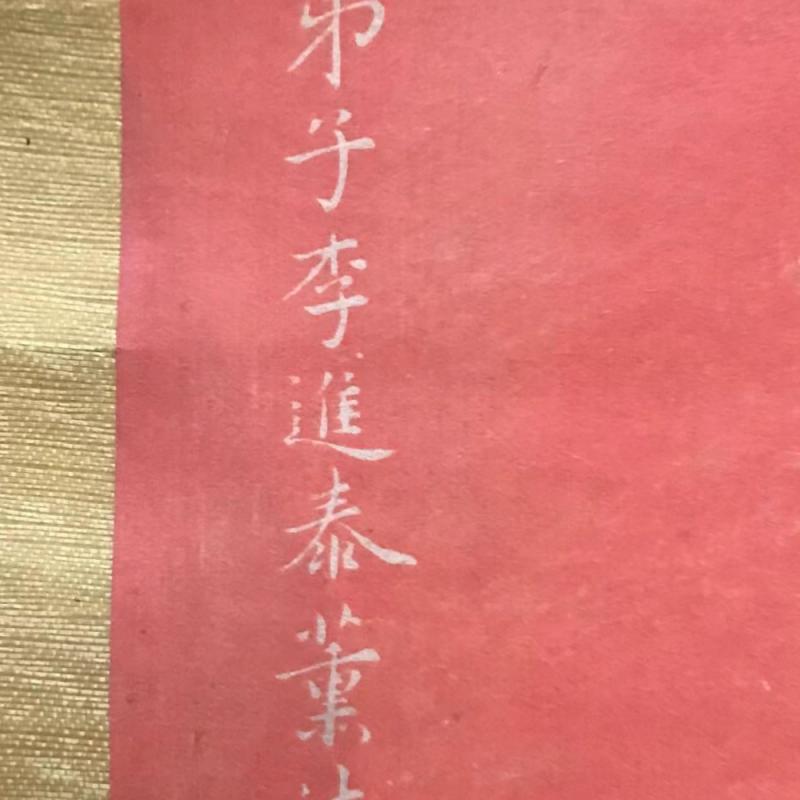 弟子李進泰薰